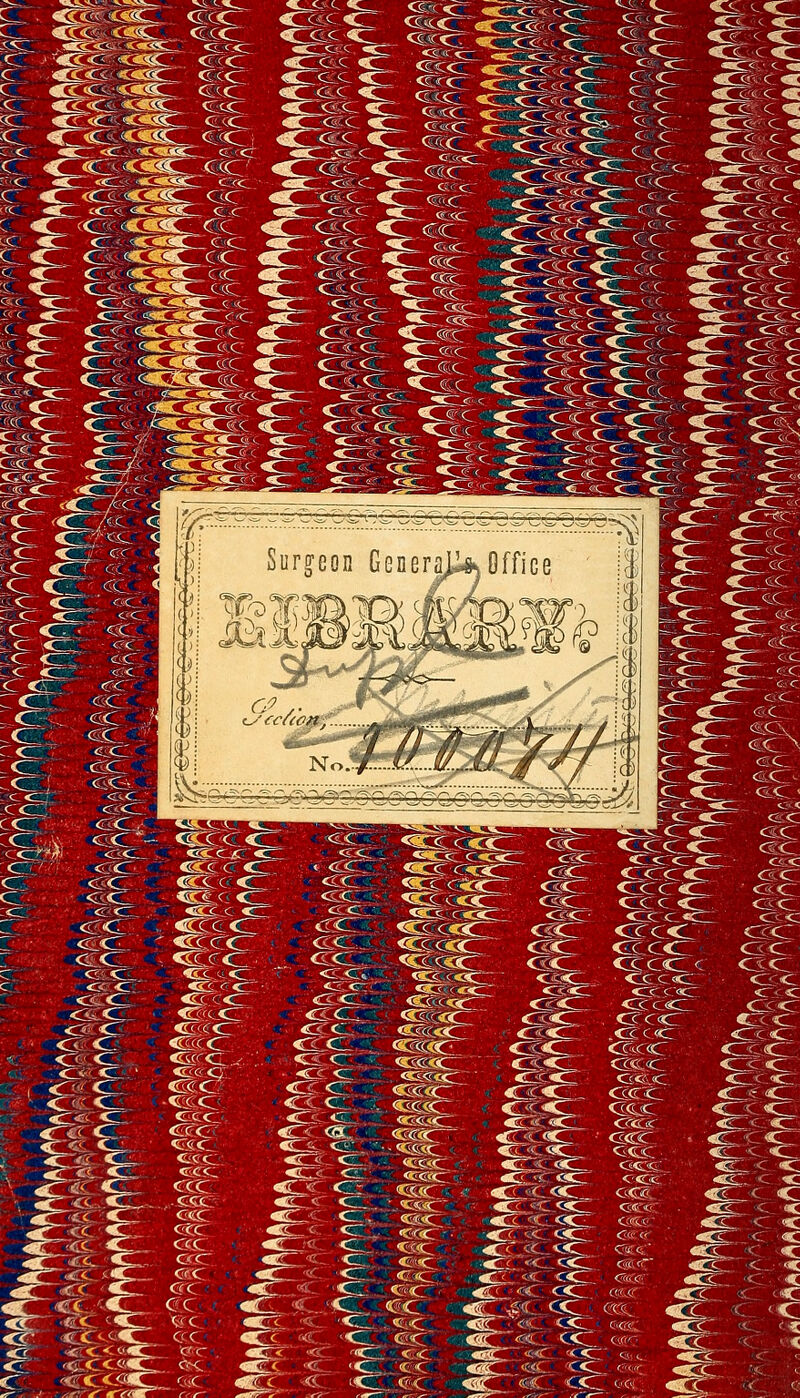 Surgeon General's Office
LIBRARY.
Section,
No. 100074